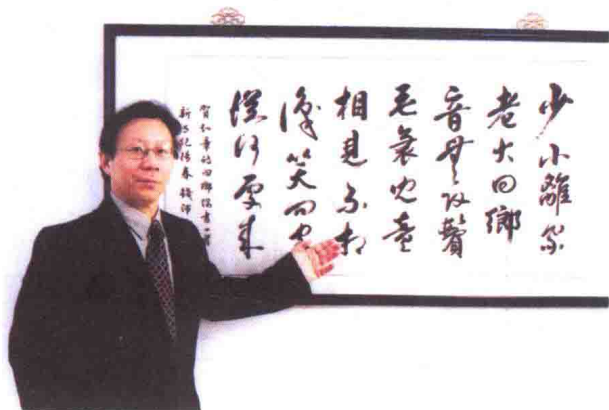 少小離家
老大回鄉
音無改鬢
毛衰兒童
相見不相
識笑問客
從何處來
賀知章詩回鄉偶書一
新世紀陽春錢